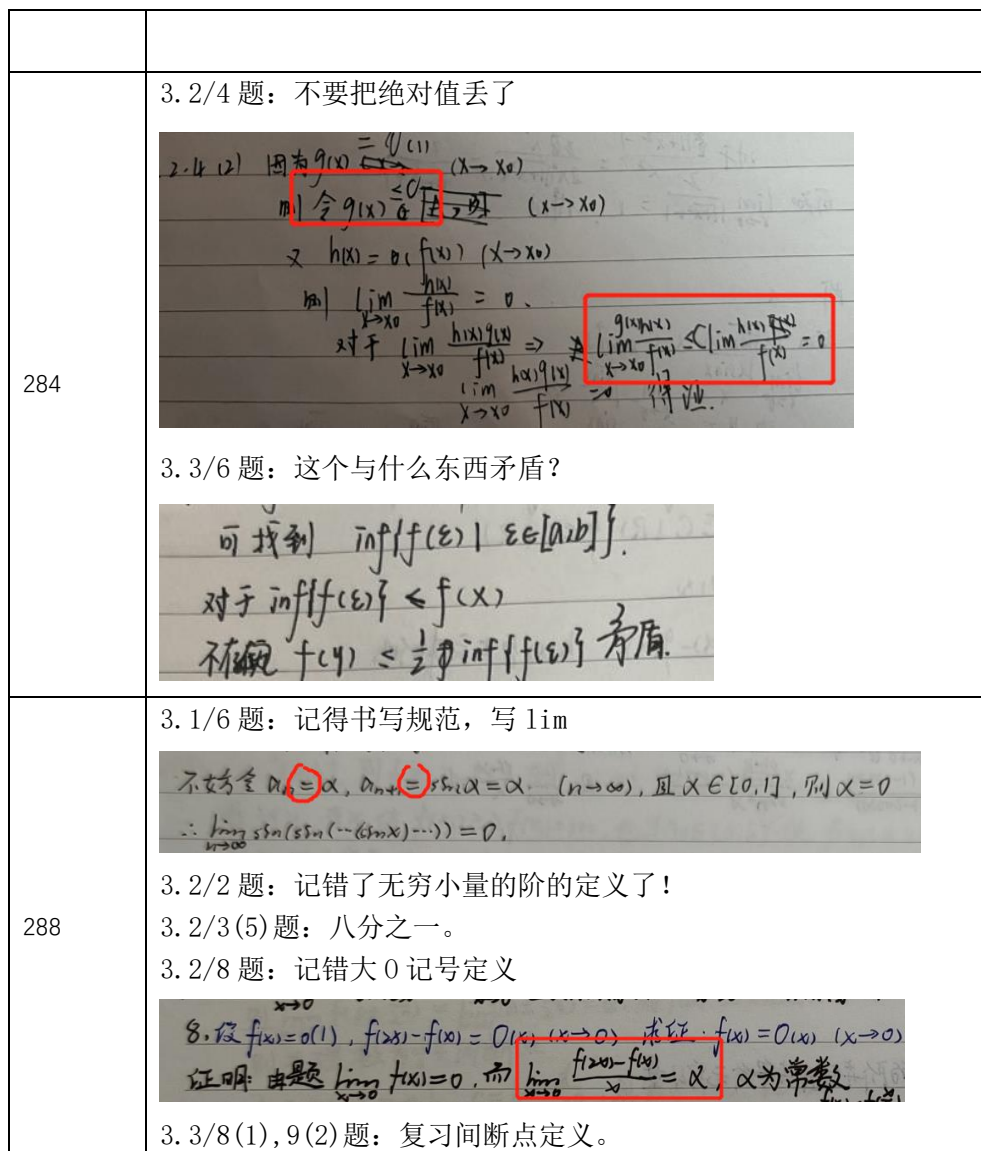 3.2/4题：不要把绝对值丢了
2.4 (2) 因为g(x) = O(1) (x→x0)
则 令 g(x) ≤ C (x→x0)
又 h(x) = o(f(x)) (x→x0)
则 lim x→x0 h(x)/f(x) = 0.
对于 lim x→x0 h(x)g(x)/f(x) => lim x→x0 g(x)h(x)/f(x) ≤ C lim h(x)/f(x) = 0
lim x→x0 h(x)g(x)/f(x) =0 得证.
284
3.3/6题：这个与什么东西矛盾？
可找到 inf{f(ε)| ε∈[a,b]}.
对于 inf{f(ε)} ≤ f(x)
f(y) ≤ 1/2 inf{f(ε)} 矛盾.
3.1/6题：记得书写规范，写lim
不妨令 an=α, an+1=sinα=α. (n→∞), 且 α∈[0,1], 则α=0
∴ lim n→∞ sin(sin(…(sinx)…))=0.
288
3.2/2题：记错了无穷小量的阶的定义了！
3.2/3(5)题：八分之一。
3.2/8题：记错大O记号定义
8.设 f(x)=o(1), f(2x)-f(x)=O(x) (x→0) 求证: f(x)=O(x) (x→0)
证明: 由题 lim x→0 f(x)=0, 而 lim x→0 f(2x)-f(x)/x = α, α为常数
3.3/8(1),9(2)题：复习间断点定义。